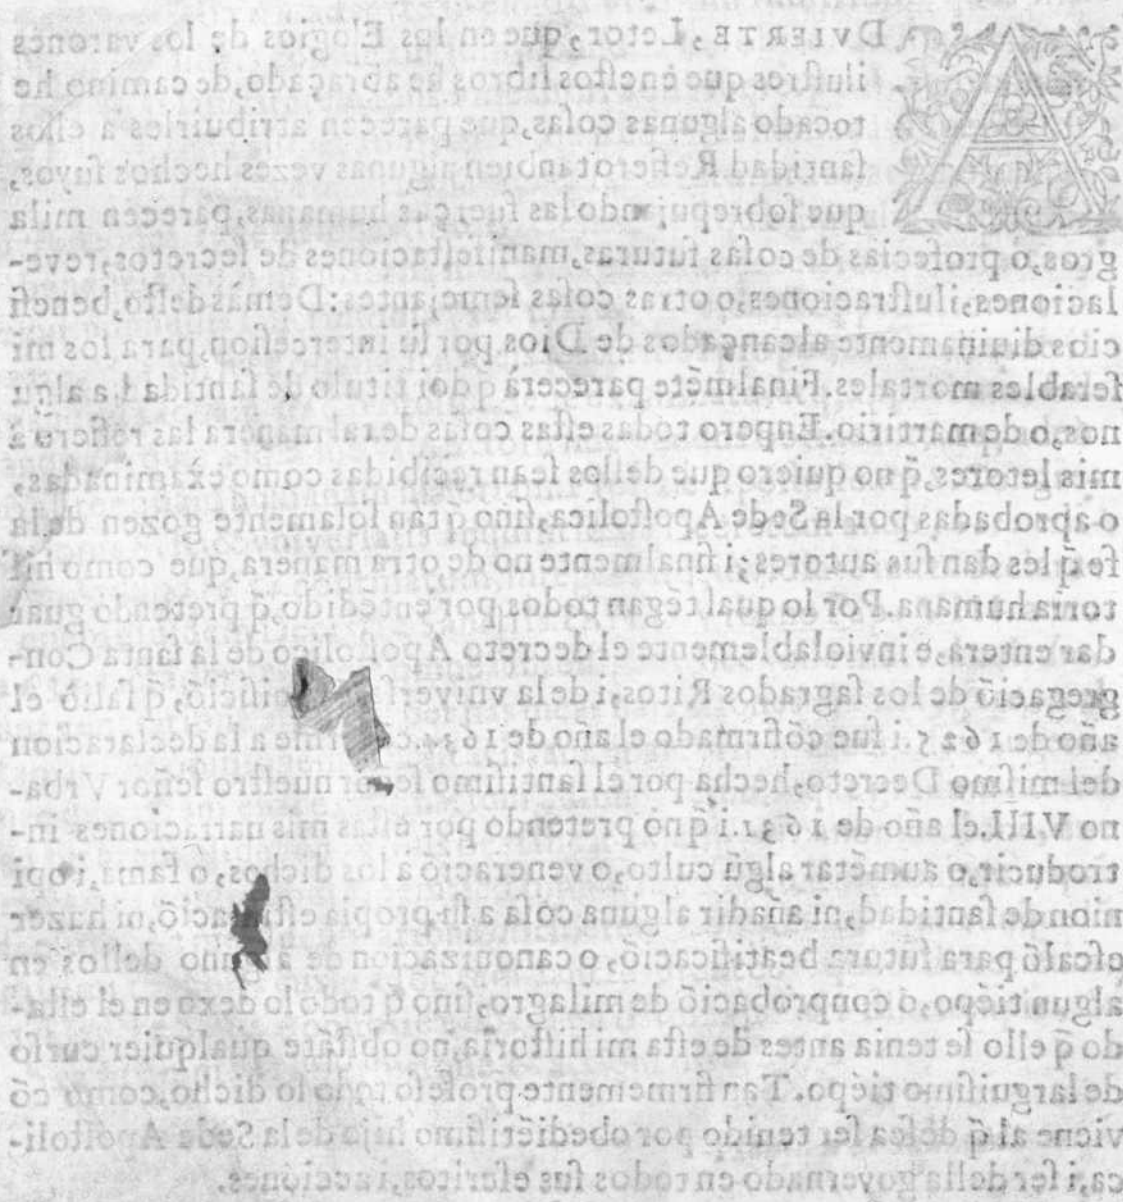 ADVIERTE, Letor, que en los Elogios de los varones
ilustres que ēnestos libros he abraçado, de camino he
tocado algunas cosas, que parecen atribuirles a ellos
santidad Refiero tanbien algunas vezes hechos suyos,
que sobrepujandolas fuerças humanas, parecen mila
gros, o profecias de cosas futuras, manifestaciones de secretos, reve-
laciones, ilustraciones, o otras cosas semejantes: Demàs desto, benefi
cios diuinamente alcançados de Dios por su intercession, para los mi
serables mortales. Finalmēte parecerà q doi titulo de santidad a algu
nos, o de martirio. Enpero todas estas cosas de tal manera las refiero à
mis letores, q̃ no quiero que dellos sean recibidas como exàminadas,
o aprobadas por la Sede Apostolica, sino q̃ tan solamente gozen de la
fe q̃ les dan sus autores; i finalmente no de otra manera, que como his
toria humana. Por lo qual tēgan todos por entēdido, q̃ pretendo guar
dar entera, e inviolablemente el decreto Apostolico de la santa Con-
gregaciō de los sagrados Ritos, i dela vniversal Inquisiciō, q̃ saliò el
año de 1625. i fue cōfirmado el año de 1634. conforme a la declaracion
del mismo Decreto, hecha por el santissimo señor nuestro señor Vrba-
no VIII. el año de 1631. i q̃ no pretendo por estas mis narraciones in-
troducir, o aumētar algū culto, o veneraciō à los dichos, o fama, i opi
nion de santidad, ni añadir alguna cosa a su propia estimaciō, ni hazer
escalō para futura beatificaciō, o canonizacion de alguno dellos en
algun tiēpo, ò conprobaciō de milagro, sino q̃ todo lo dexo en el esta-
do q̃ ello se tenia antes de esta mi historia, no obstāte qualquier curso
de larguissimo tiēpo. Tan firmemente profeso todo lo dicho, como cō
viene al q̃ desea ser tenido por obediētissimo hijo dela Sede Apostoli-
ca, i ser della governado en todos sus escritos, i acciones.